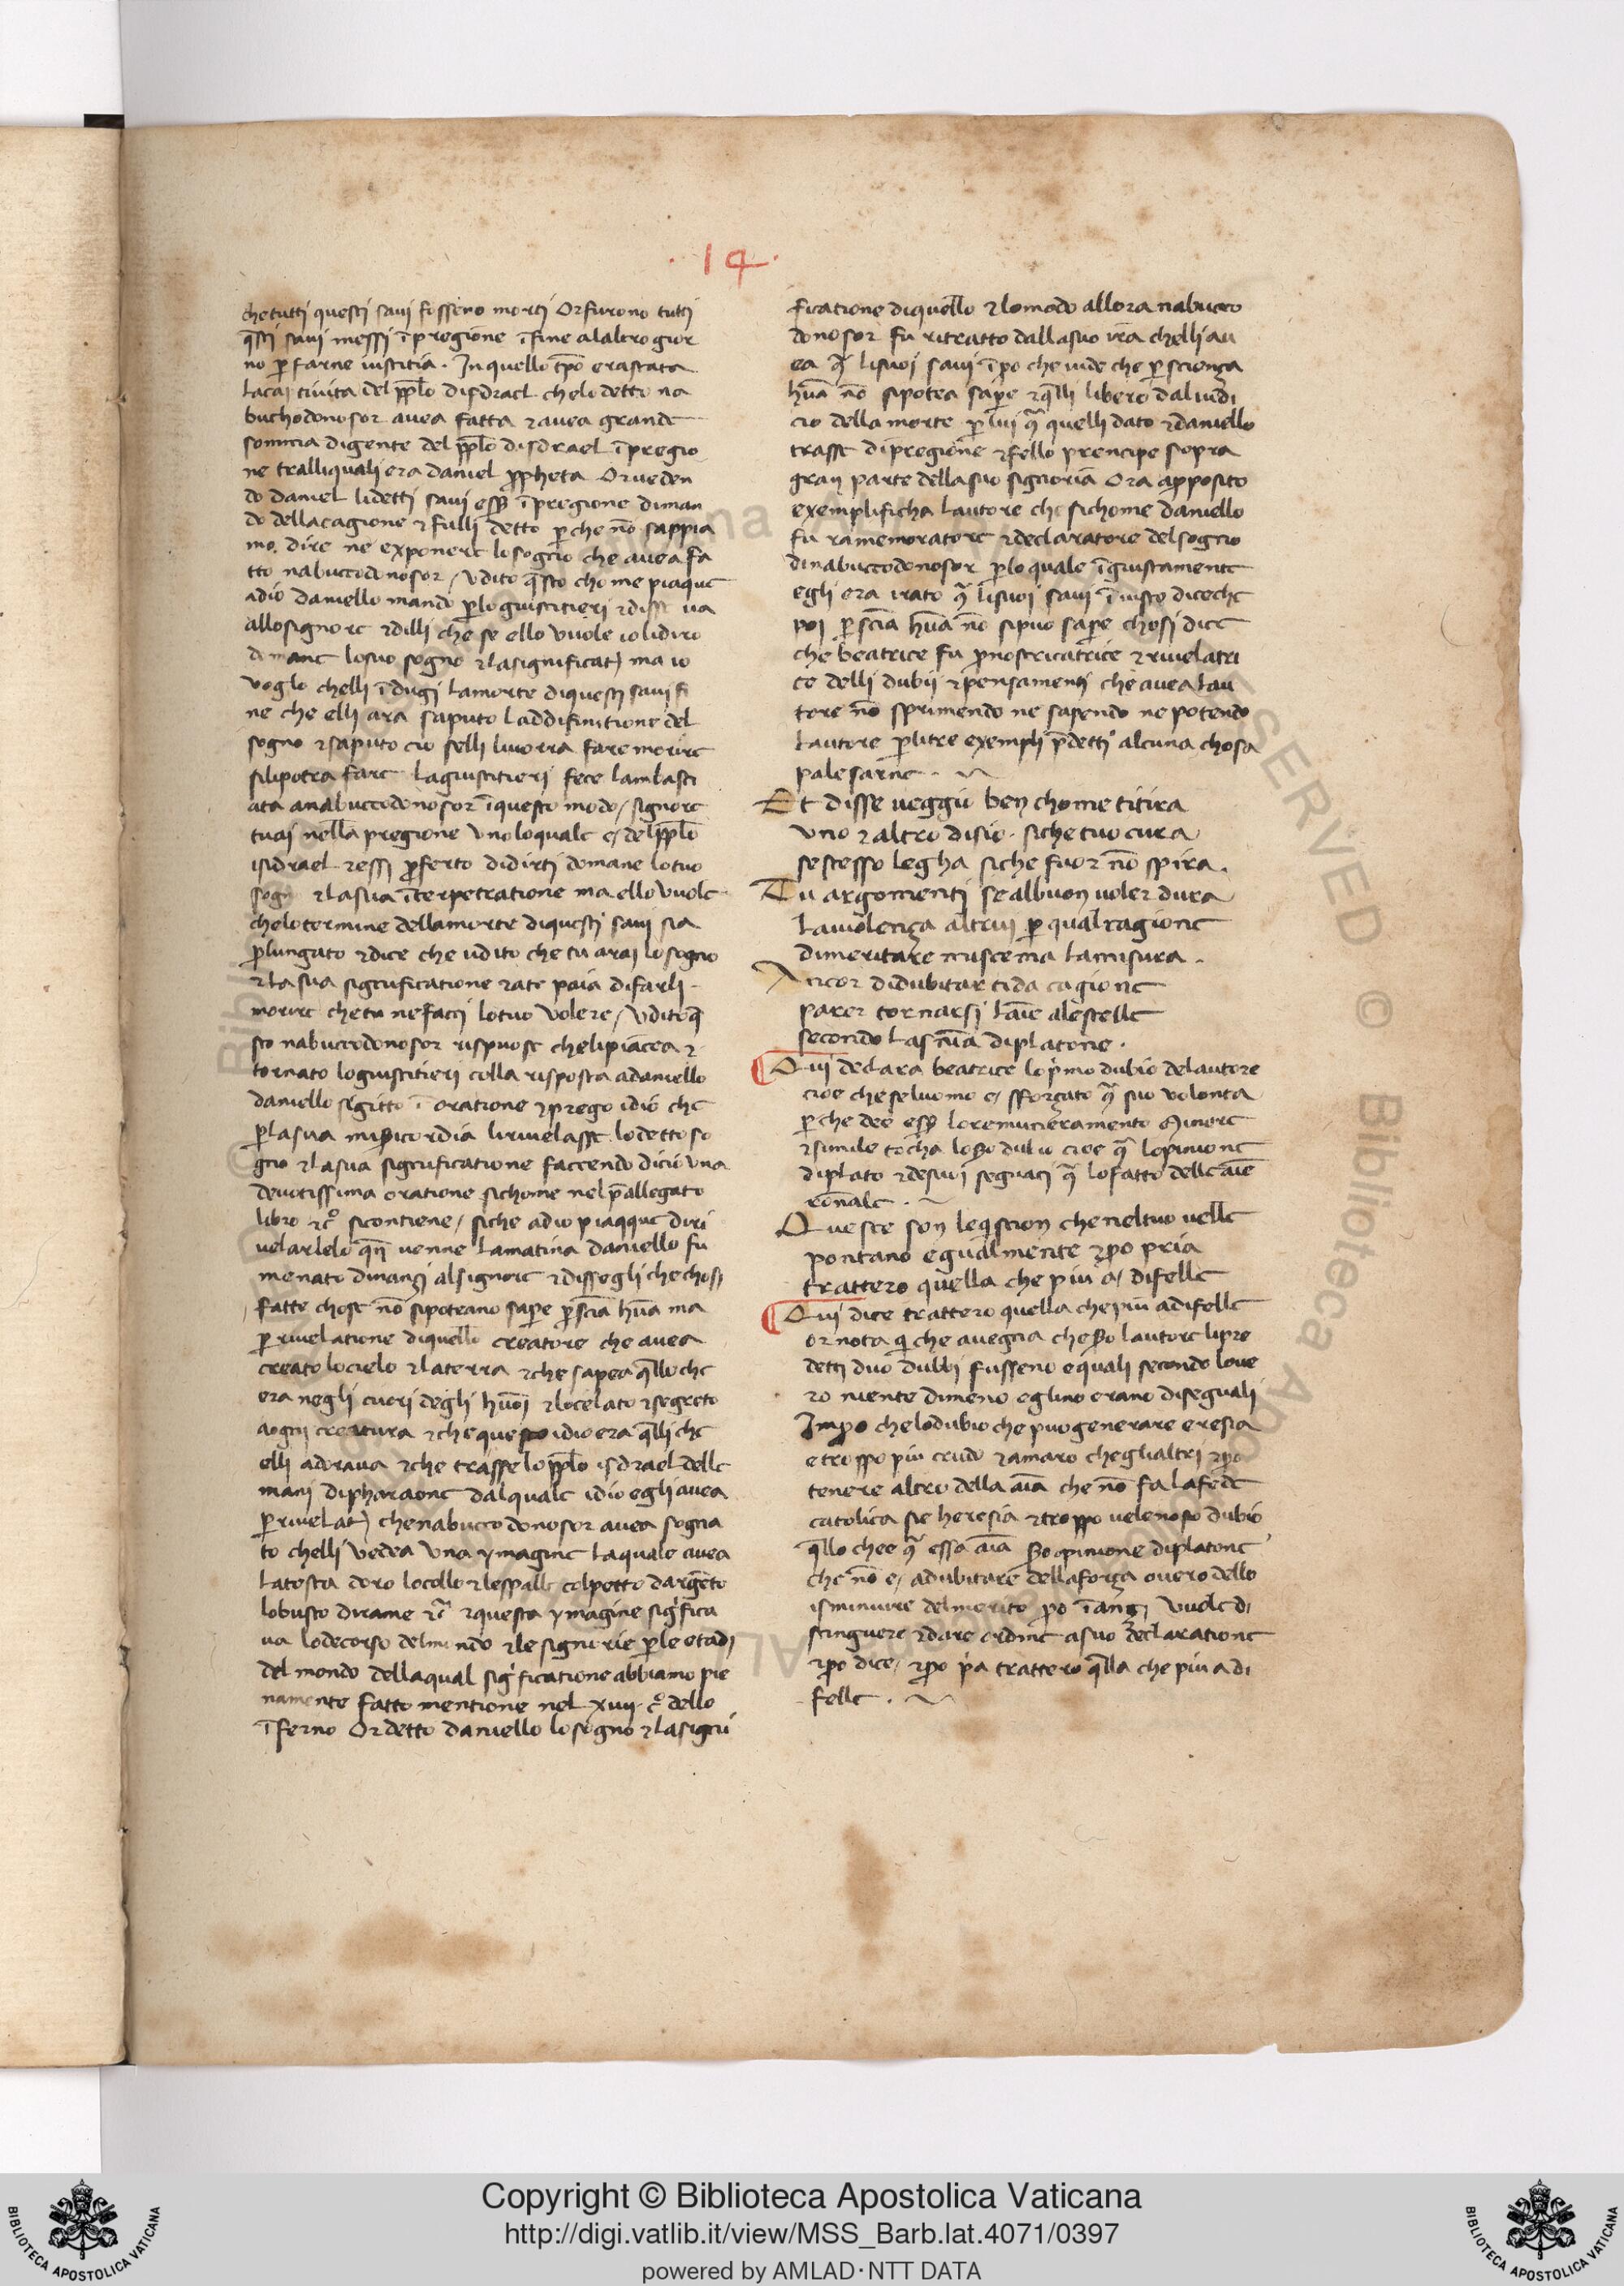 ·14·
che tutti questi savi fosseno morti Or furono tutti
q̄sti savi messi ī pregione īfine alaltro gior
no ꝑ farne iustitia · In quello tp̄o era stata
la cattivita del pp̄lo disdrael che lo detto na
buchodonosor avea fatta ⁊ avea grande
somma di gente del pp̄lo disdrael ī pregio
ne tralli quali era daniel ꝓpheta Or veden
do daniel li detti savi eẜẜ ī pregione diman
do della cagione ⁊ fulli detto ꝑche nō sappia
mo dire ne exponere lo sogno che avea fa
tto nabuccodonosor / Udito q̄sto chome piaque
a dio daniello mando ꝑ lo giustitieri ⁊ disse va
allo signore ⁊ dilli che se ello vuole io li diro
domane lo suo sogno ⁊ la significat) ma io
voglo chelli īdugi la morte di questi savi fi
ne che elli ara saputo la ddifinitione del
sogno ⁊ saputo cio selli li vorra fare morire
si li potra fare La giustitieri fece lambasci
ata a nabuccodonosor ī questo modo / signore
tu ai nella pregione uno lo quale e / del pp̄lo
isidrael ⁊ essi ꝓferto di dirti domane lo tuo
sogno ⁊ la sua īterpetratione ma ello vuole
che lo termine della morte di questi savi sia
ꝓlungato ⁊ dice che udito che tu arai lo sogno
⁊ la sua significatione ⁊ a te paia di farli
morire che tu ne facci lo tuo volere / Udito q̄
sto nabuccodonosor rispuose che li piacea ⁊
tornato lo giustitieri colla risposta a daniello
daniello si gitto ī oratione ⁊ prego idio che
ꝑ la sua mīa̅icordia li rivelasse lo detto so
gno ⁊ la sua significatione faccendo di cio una
devotissima oratione sichome nel p̄allegato
libro ⁊ c̊ si contiene / siche a dio piaqque di ri
velarlelo q̄n̄ venne la matina daniello fu
menato dinanzi al signore ⁊ disse gli che chosi
fatte chose nō si potrano saꝑe ꝑ scīa hūa ma
ꝑ rivelatione di quello creatore che avea
creato lo cielo ⁊ la terra ⁊ che sapea q̄llo che
era negli cuori degli huōi ⁊ lo celato ⁊ segreto
a ogni creatura ⁊ che questo idio era q̄lli che
elli adorava ⁊ che trasse lo pp̄lo isdrael delle
mani di pharaone dal quale idio egli avea
ꝑ rivelat) che nabuccodonosor avea sogna
to chelli vedea una ymagine la quale avea
la testa doro lo collo ⁊ le spalle col petto dargēto
lo busto di rame ⁊ c̄ ⁊ questa ymagine significa
va lo decorso del mondo ⁊ le signorie ꝑ le etadi
del mondo della qual significatione abbiamo pie
namente fatto mentione nel xiiij · c̊ dello
īferno Or detto daniello lo sogno ⁊ la signi
ficatione di quello ⁊ lo modo allora nabucco
donosor fu ritratto dalla suo ira chelli av
ea 9ͣ li suoi savi īpo che vide che ꝑ scienza
hūa nō si potea saꝑe ⁊ q̄lli libero dal iudi
cio della morte ꝑ lui 9ͣ quelli dato ⁊ daniello
trasse di pregione ⁊ fello prencipe sopra
gran parte della suo signoria Ora a ꝓposito
exemplificha lautore che sichome daniello
fu ramemoratore ⁊ declaratore del sogno
di nabuccodonosor ꝑ lo quale īgiustamente
egli era irato 9ͣ li suoi savi īiusto dice che
poi ꝑ scīa hūa nō si puo saꝑe chosi dice
che beatrice fu ꝓnosticatrice ⁊ rivelatri
ce delli dubii ⁊ pensamenti che avea lau
tore nō sprimendo ne sapendo ne potendo
lautore ꝑ li tre exempli p̄detti alcuna chosa
palesarne ·
Et disse veggio ben chome ti tira
uno ⁊ altro disio · siche tuo cura
se stesso legha siche fuor nō spira ·
Tu argomenti se al buon voler dura
la violenza altrui ꝑ qual ragione
di meritare mi scema la misura ·
Ancor di dubitar ti da cagione
parer tornarsi laīe ale stelle
secondo la sn̄ia di platone ·
Qui declara beatrice lo p̄mo dubio del autore
cioe che se luomo e / sforzato 9ͣ suo volonta
ꝑche dee eẜẜ lo remuneramento minore
⁊ simile tocha lo ẜo dubio cioe 9ͣ lopinione
di plato ⁊ de suoi seguaci 9ͣ lo fatto delle aīe
ronale ·
Queste son le q̄stion che nel tuo velle
pontano egualmente ⁊ ꝑo pria
trattero quella che piu a / di felle
Qui dice trattero quella che piu a di felle
or nota q̄ che avegna che ẜo lautore li pre
detti duo dubbi fusseno equali secondo lo ve
ro niente dimeno eglino erano diseguali
Impo che lo dubio che puo generare eresia
e troppo piu crudo ⁊ amaro che gli altri ⁊ ꝑo
tenere altro della aīa che nō fa la fede
catolica sie heresia ⁊ troppo velenoso dubio
q̄llo che e 9ͣ essa aīa ẜo opinione di platone
che nō e / a dubitare della forza overo dello
isminuire del merito ꝑo īanzi vuole di
stinguere ⁊ dare ordine a suo declaratione
⁊ ꝑo dice / ⁊ ꝑo p̄a trattero q̄lla che piu a di
felle ·
Copyright © Biblioteca Apostolica Vaticana
http://digi.vatlib.it/view/MSS_Barb.lat.4071/0397
powered by AMLAD·NTT DATA
BIBLIOTECA APOSTOLICA VATICANA
BIBLIOTECA APOSTOLICA VATICANA